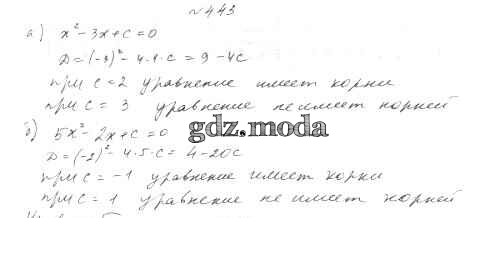 № 443
а) x² - 3x + c = 0
D = (-3)² - 4·1·c = 9 - 4c
при c = 2 уравнение имеет корни
при c = 3 уравнение не имеет корней
б) 5x² - 2x + c = 0
gdz.moda
D = (-2)² - 4·5·c = 4 - 20c
при c = -1 уравнение имеет корни
при c = 1 уравнение не имеет корней